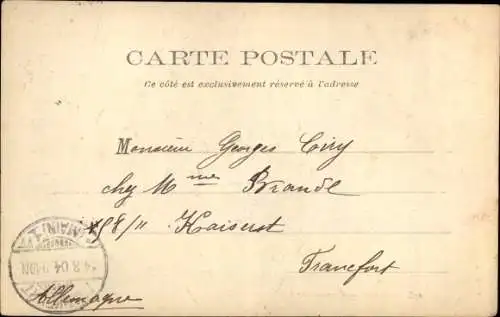 CARTE POSTALE
Ce côté est exclusivement réservé à l'adresse
Monsieur Georges Ciry
chez Mme Brande
58/II Kaiserst
Francfort
Allemagne
MAIN
4.8.04